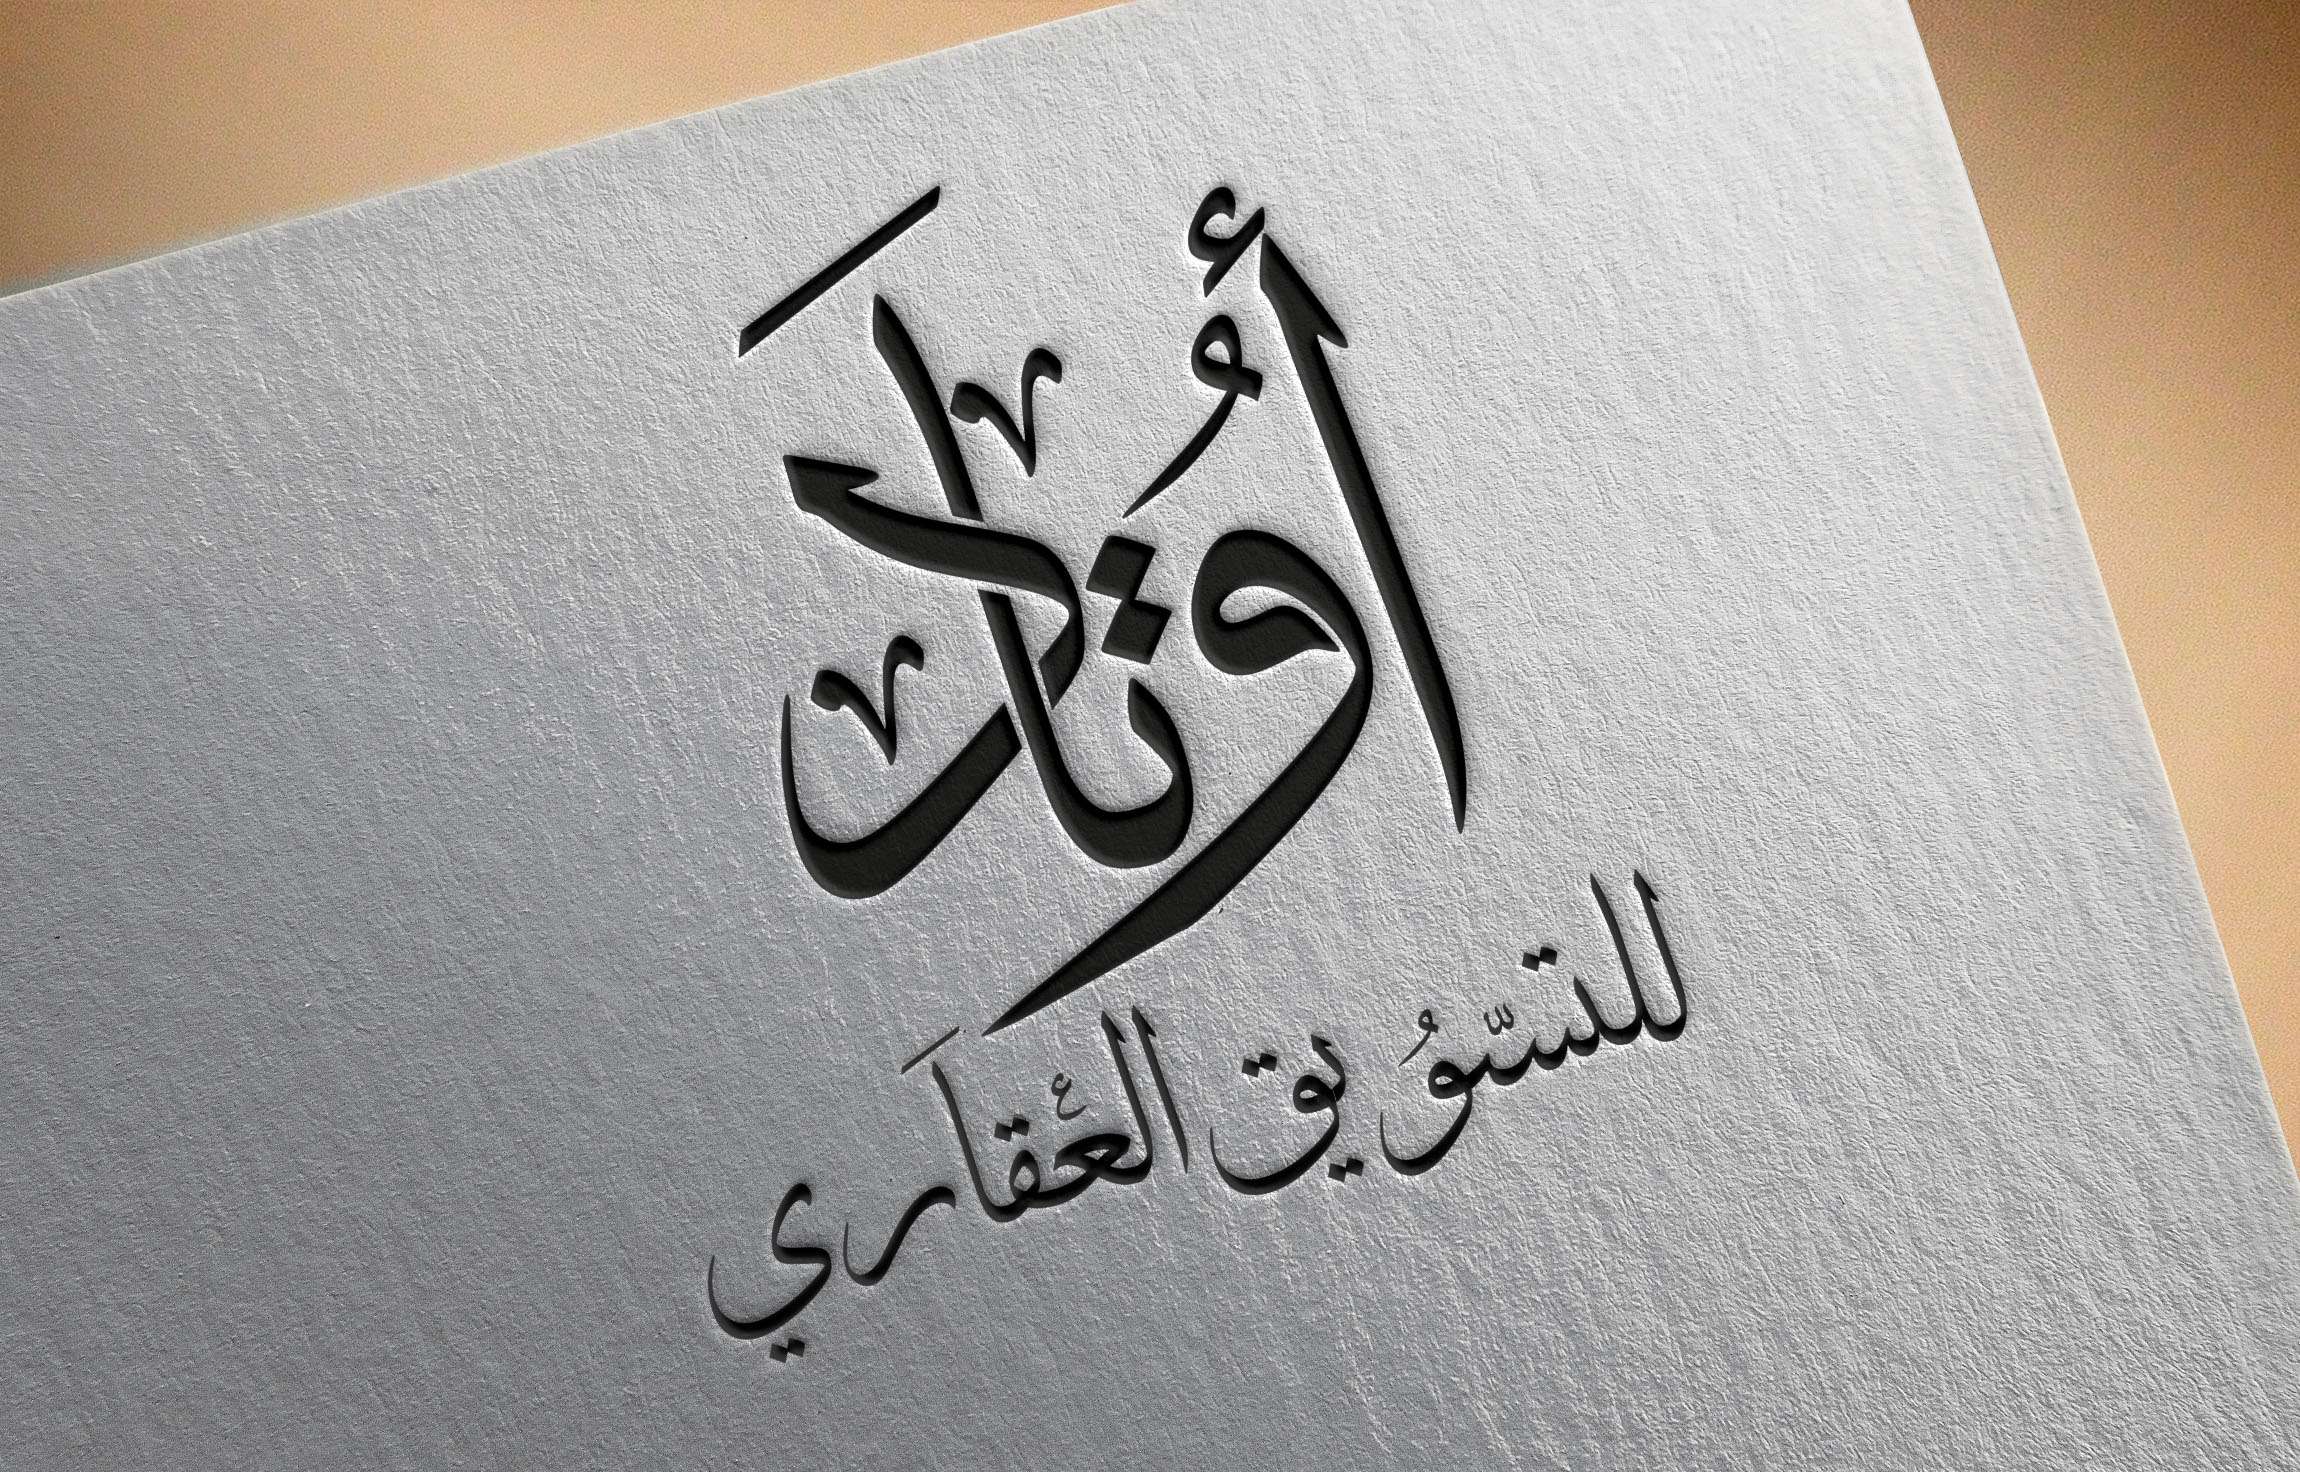 أوتاد
للتسويق العقاري